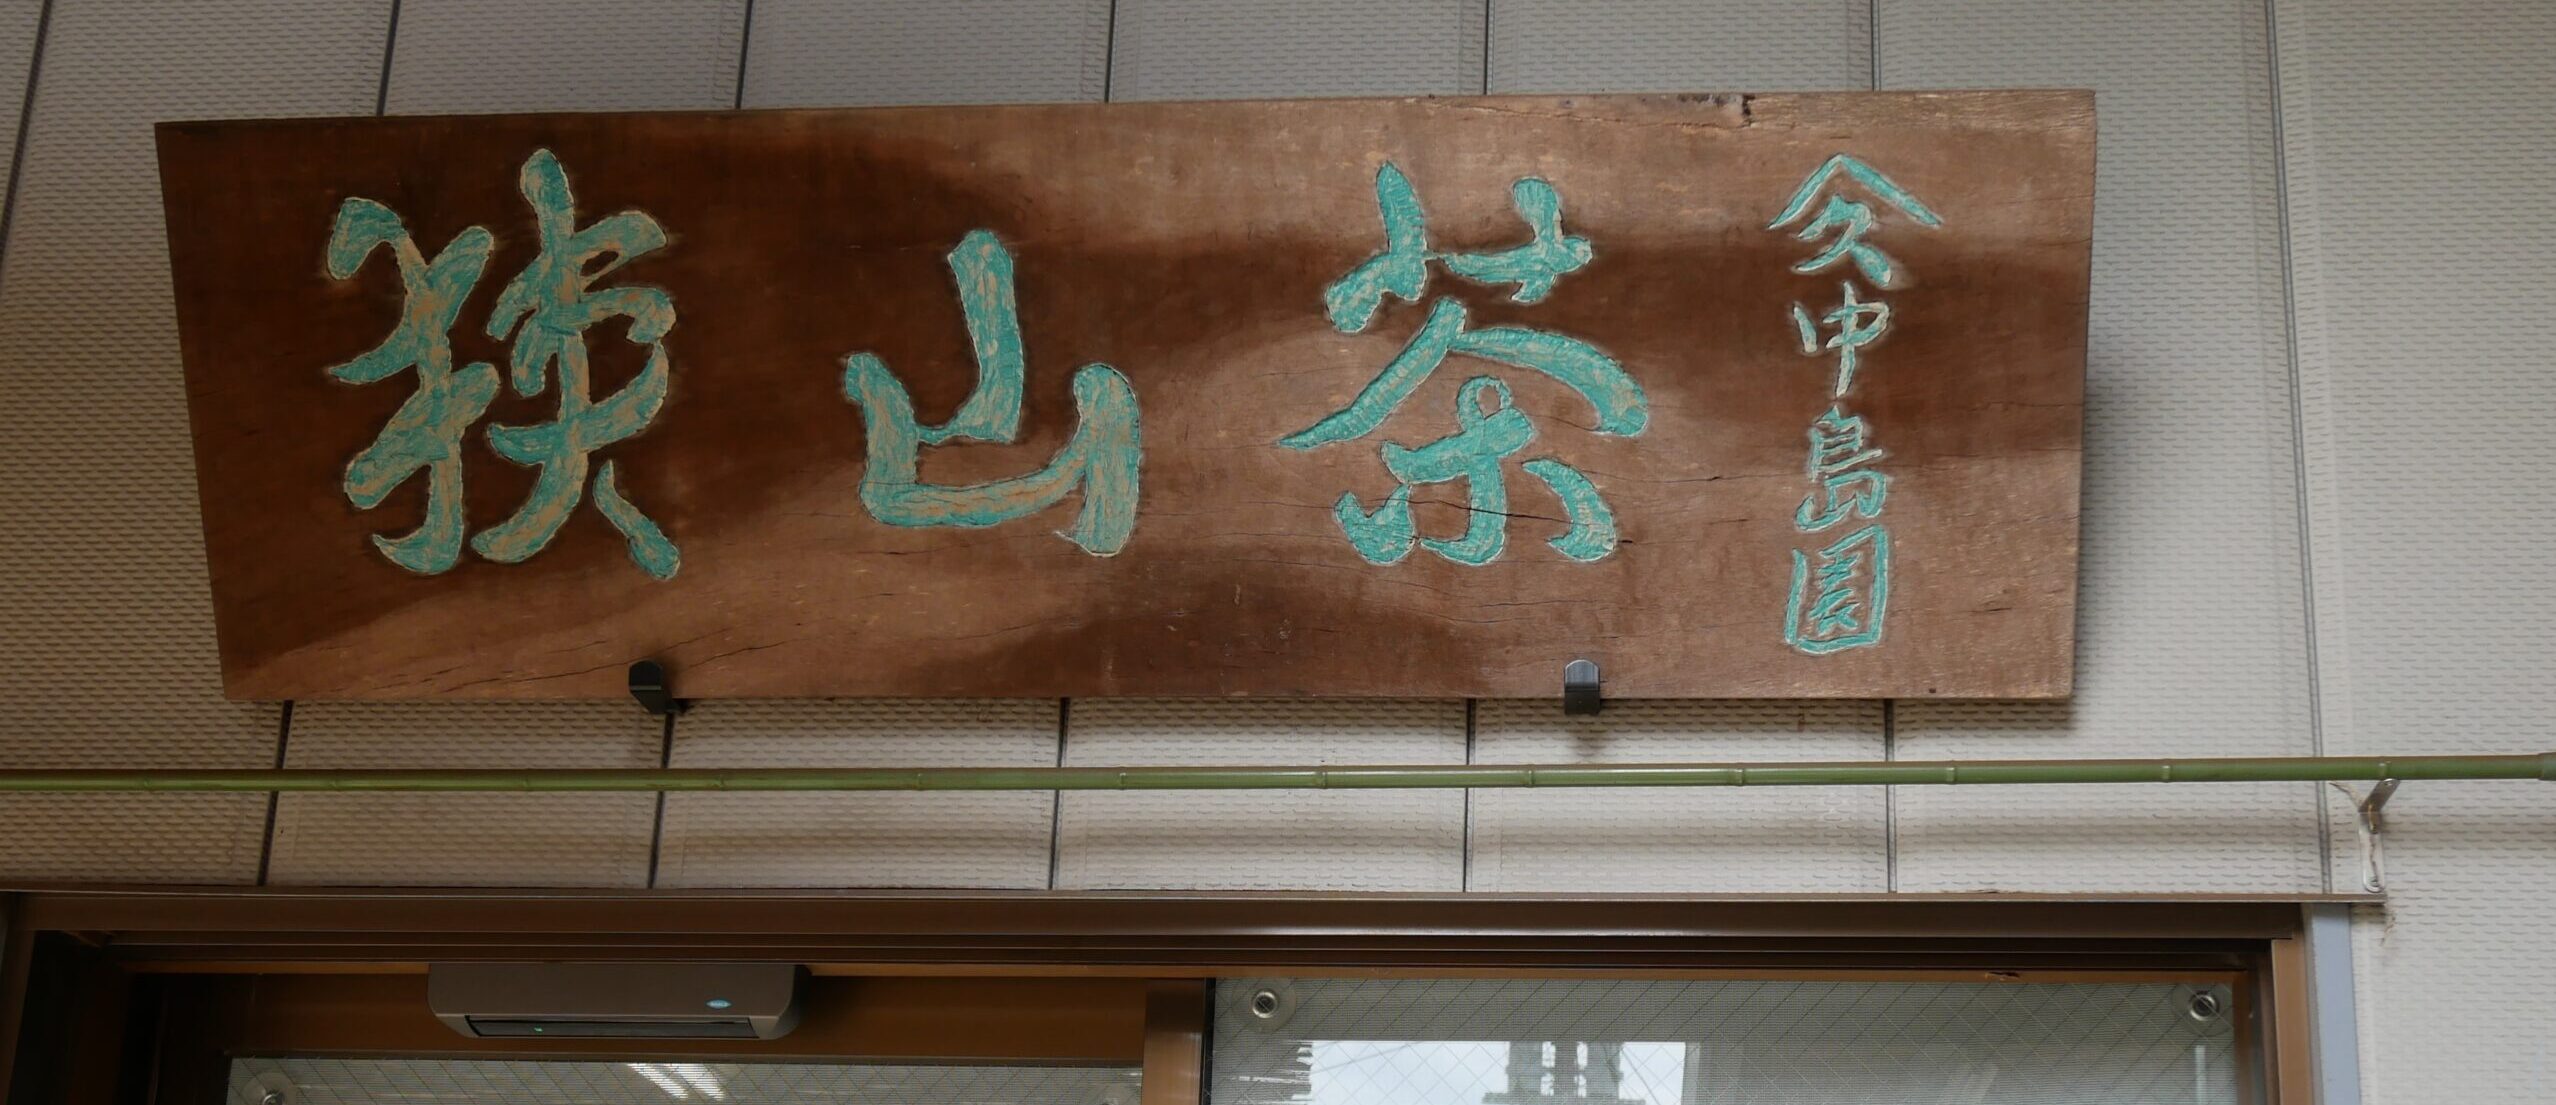 狭山茶
𠆢久中島園